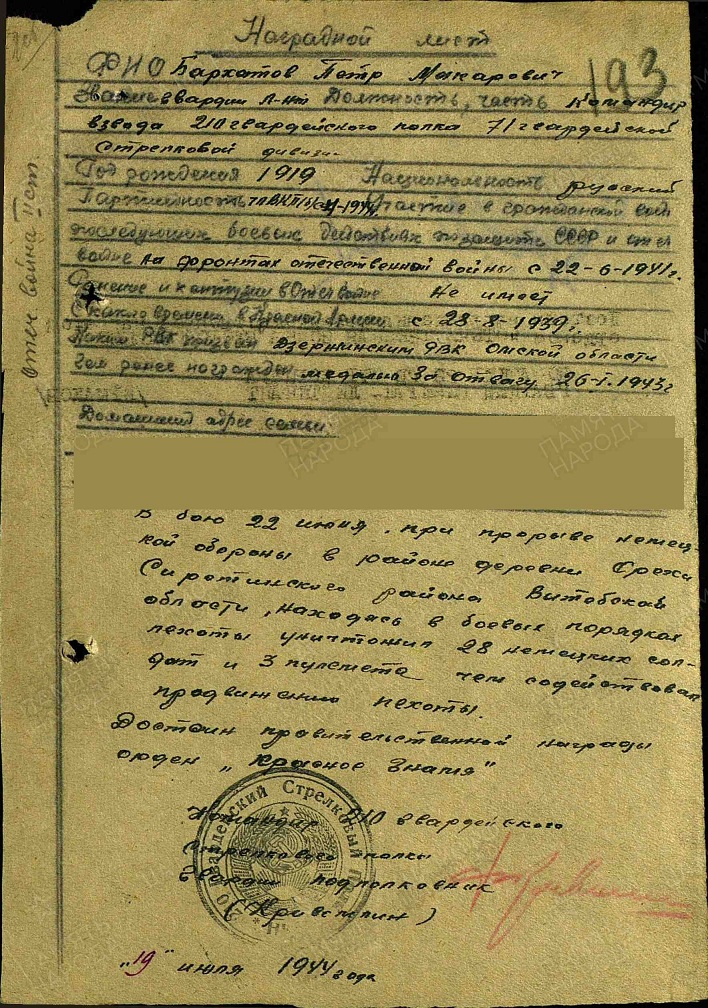 Наградной лист
193
ФИО Бархатов Петр Макарович
Звание гвардии л-нт Должность, часть Командир
взвода 210 гвардейского полка 71 гвардейской
стрелковой дивизи-
Год рождения 1919 Национальность русский
Партийность Участие в гражданской войн
последующих боевых действиях по защите СССР и отеч
войне на фронтах отечественной войны с 22-6-1941г.
Ранение и контузии в Отеч войне Не имеет
С какого времени в Красной Армии с 28-8-1939г.
Каким РВК призван Дзержинским РВК Омской области
Чем ранее награжден медалью За отвагу 26-I.1943г
Домашний адрес семьи:
В бою 22 июня, при прорыве немец-
кой обороны в районе деревни
Сиротинского района Витебской
области, находясь в боевых порядках
пехоты уничтожил 28 немецких сол-
дат и 3 пулемета чем содействовал
продвижению пехоты.
Достоин правительственной награды
орден „Красное Знамя"
Командир 210 гвардейского
стрелкового полка
гвардии подполковник
"19" июля 1944 года
Отеч война Iст.
ПАМЯТЬ НАРОДА